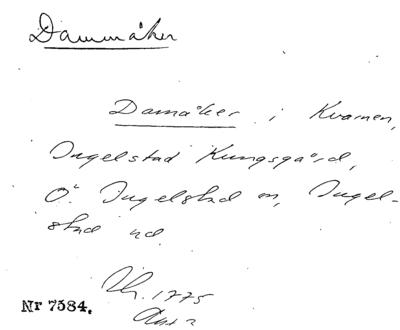 Dammåker
Damåker i Kvarnen,
Ingelstad Kungsgård,
Ö. Ingelstad sn, Ingel-
stad hd.
Lh. 1775
Akt 2
Nr 7384.